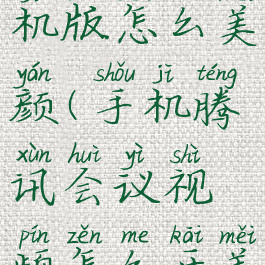 机版怎么美
yán shǒu jī téng
颜(手机腾
xùn huì yì shì
讯会议视
pín zěn me kāi měi
频怎么开美